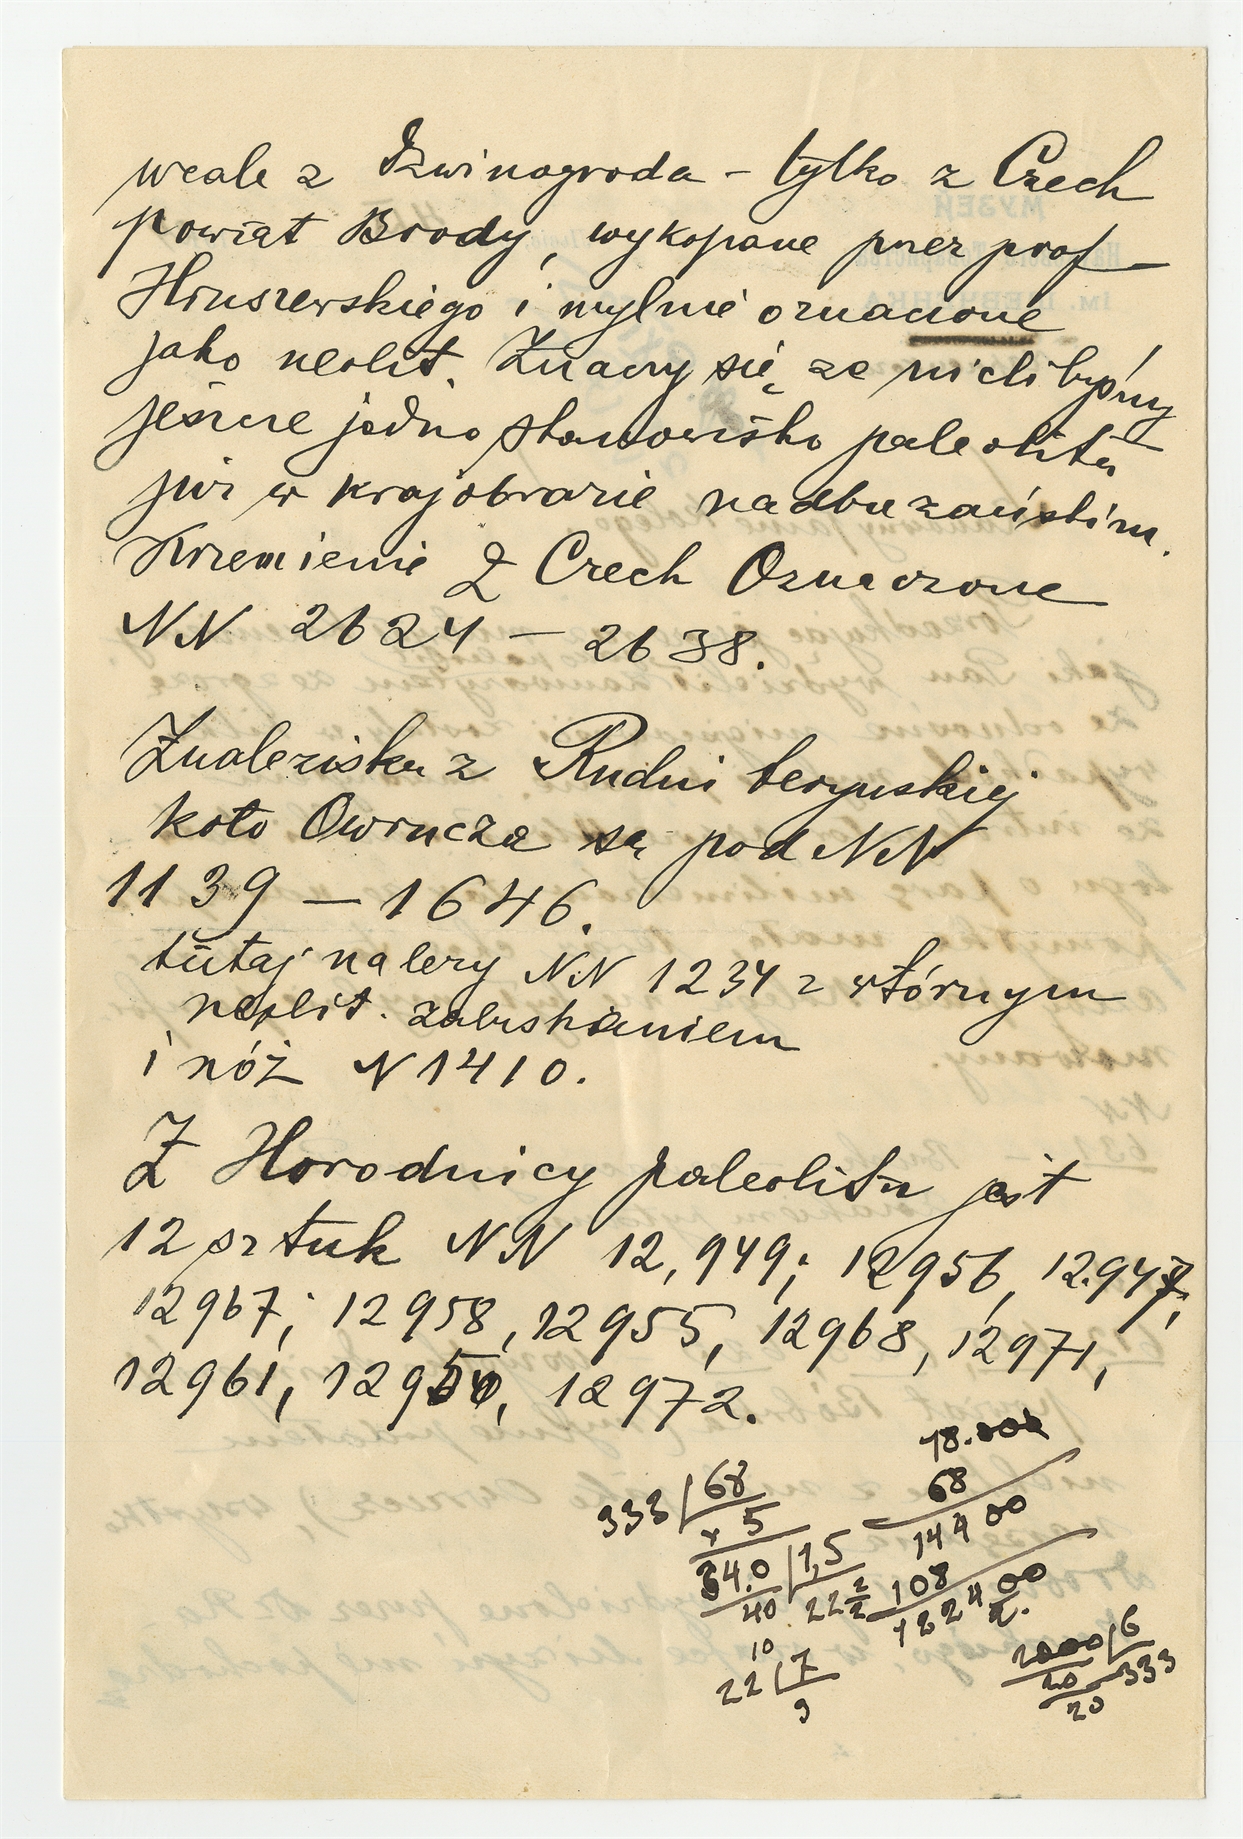 wcale z Dzwinogroda – tylko z Czech
powiat Brody, wykopane przez prof
Hruszewskiego i mylnie oznaczone
jako neolit. Znaczy się, ze mielibyśmy
jeszcze jedno stanowisko paleolitu
już w krajobrazie nadbużańskim.
Krzemienie Z Czech Oznaczone
NN 2624 – 2638.
Znaleziska z Rudni
koło Owrucza są pod NN
1139 – 1646.
tutaj należy NN 1234 z wtórnym
neolit. załuskaniem
i nóż N 1410.
Z Horodnicy paleolitu jest
12 sztuk NN 12,949; 12956, 12.947,
12967; 12958, 12955, 12968, 12971,
12961, 12972.
18.000
333 68 68
x 5 14400
34.0 1,5 108
40 22 2/2 122400
10
22 7 2000 6
9 20 333
20